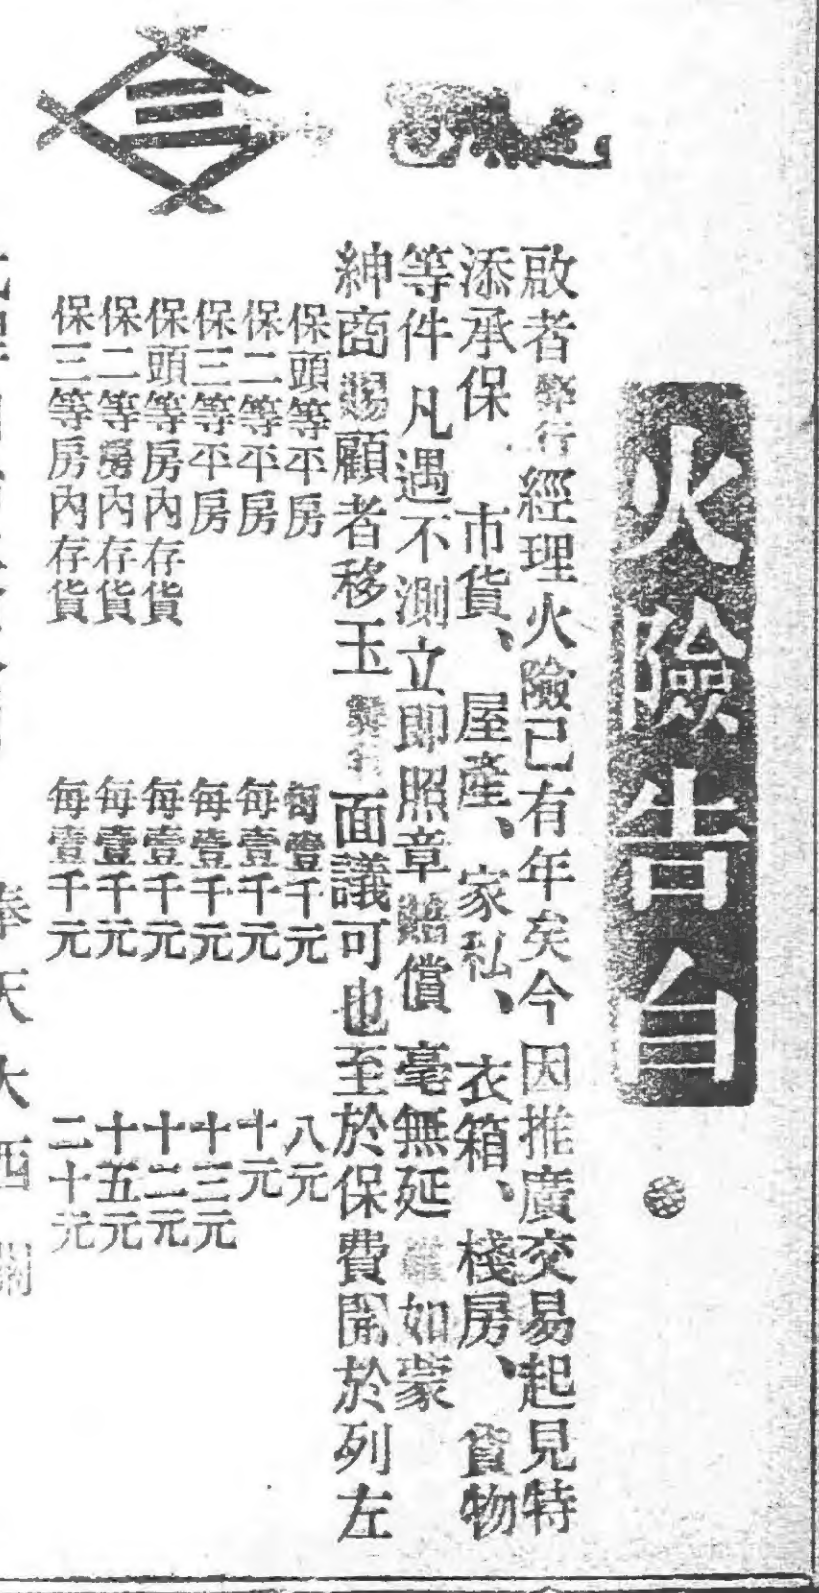 火險告白
啟者弊行經理火險已有年矣今因推廣交易起見特
添承保 市貨、屋產、家私、衣箱、棧房、貨物
等件凡遇不測立即照章賠償毫無延 如蒙
紳商賜顧者移玉弊行面議可也至於保費開於列左
保頭等平房 每壹千元 八元
保二等平房 每壹千元 十元
保三等平房 每壹千元 十三元
保頭等房內存貨 每壹千元 十二元
保二等房內存貨 每壹千元 十五元
保三等房內存貨 每壹千元 二十元
奉天大西關